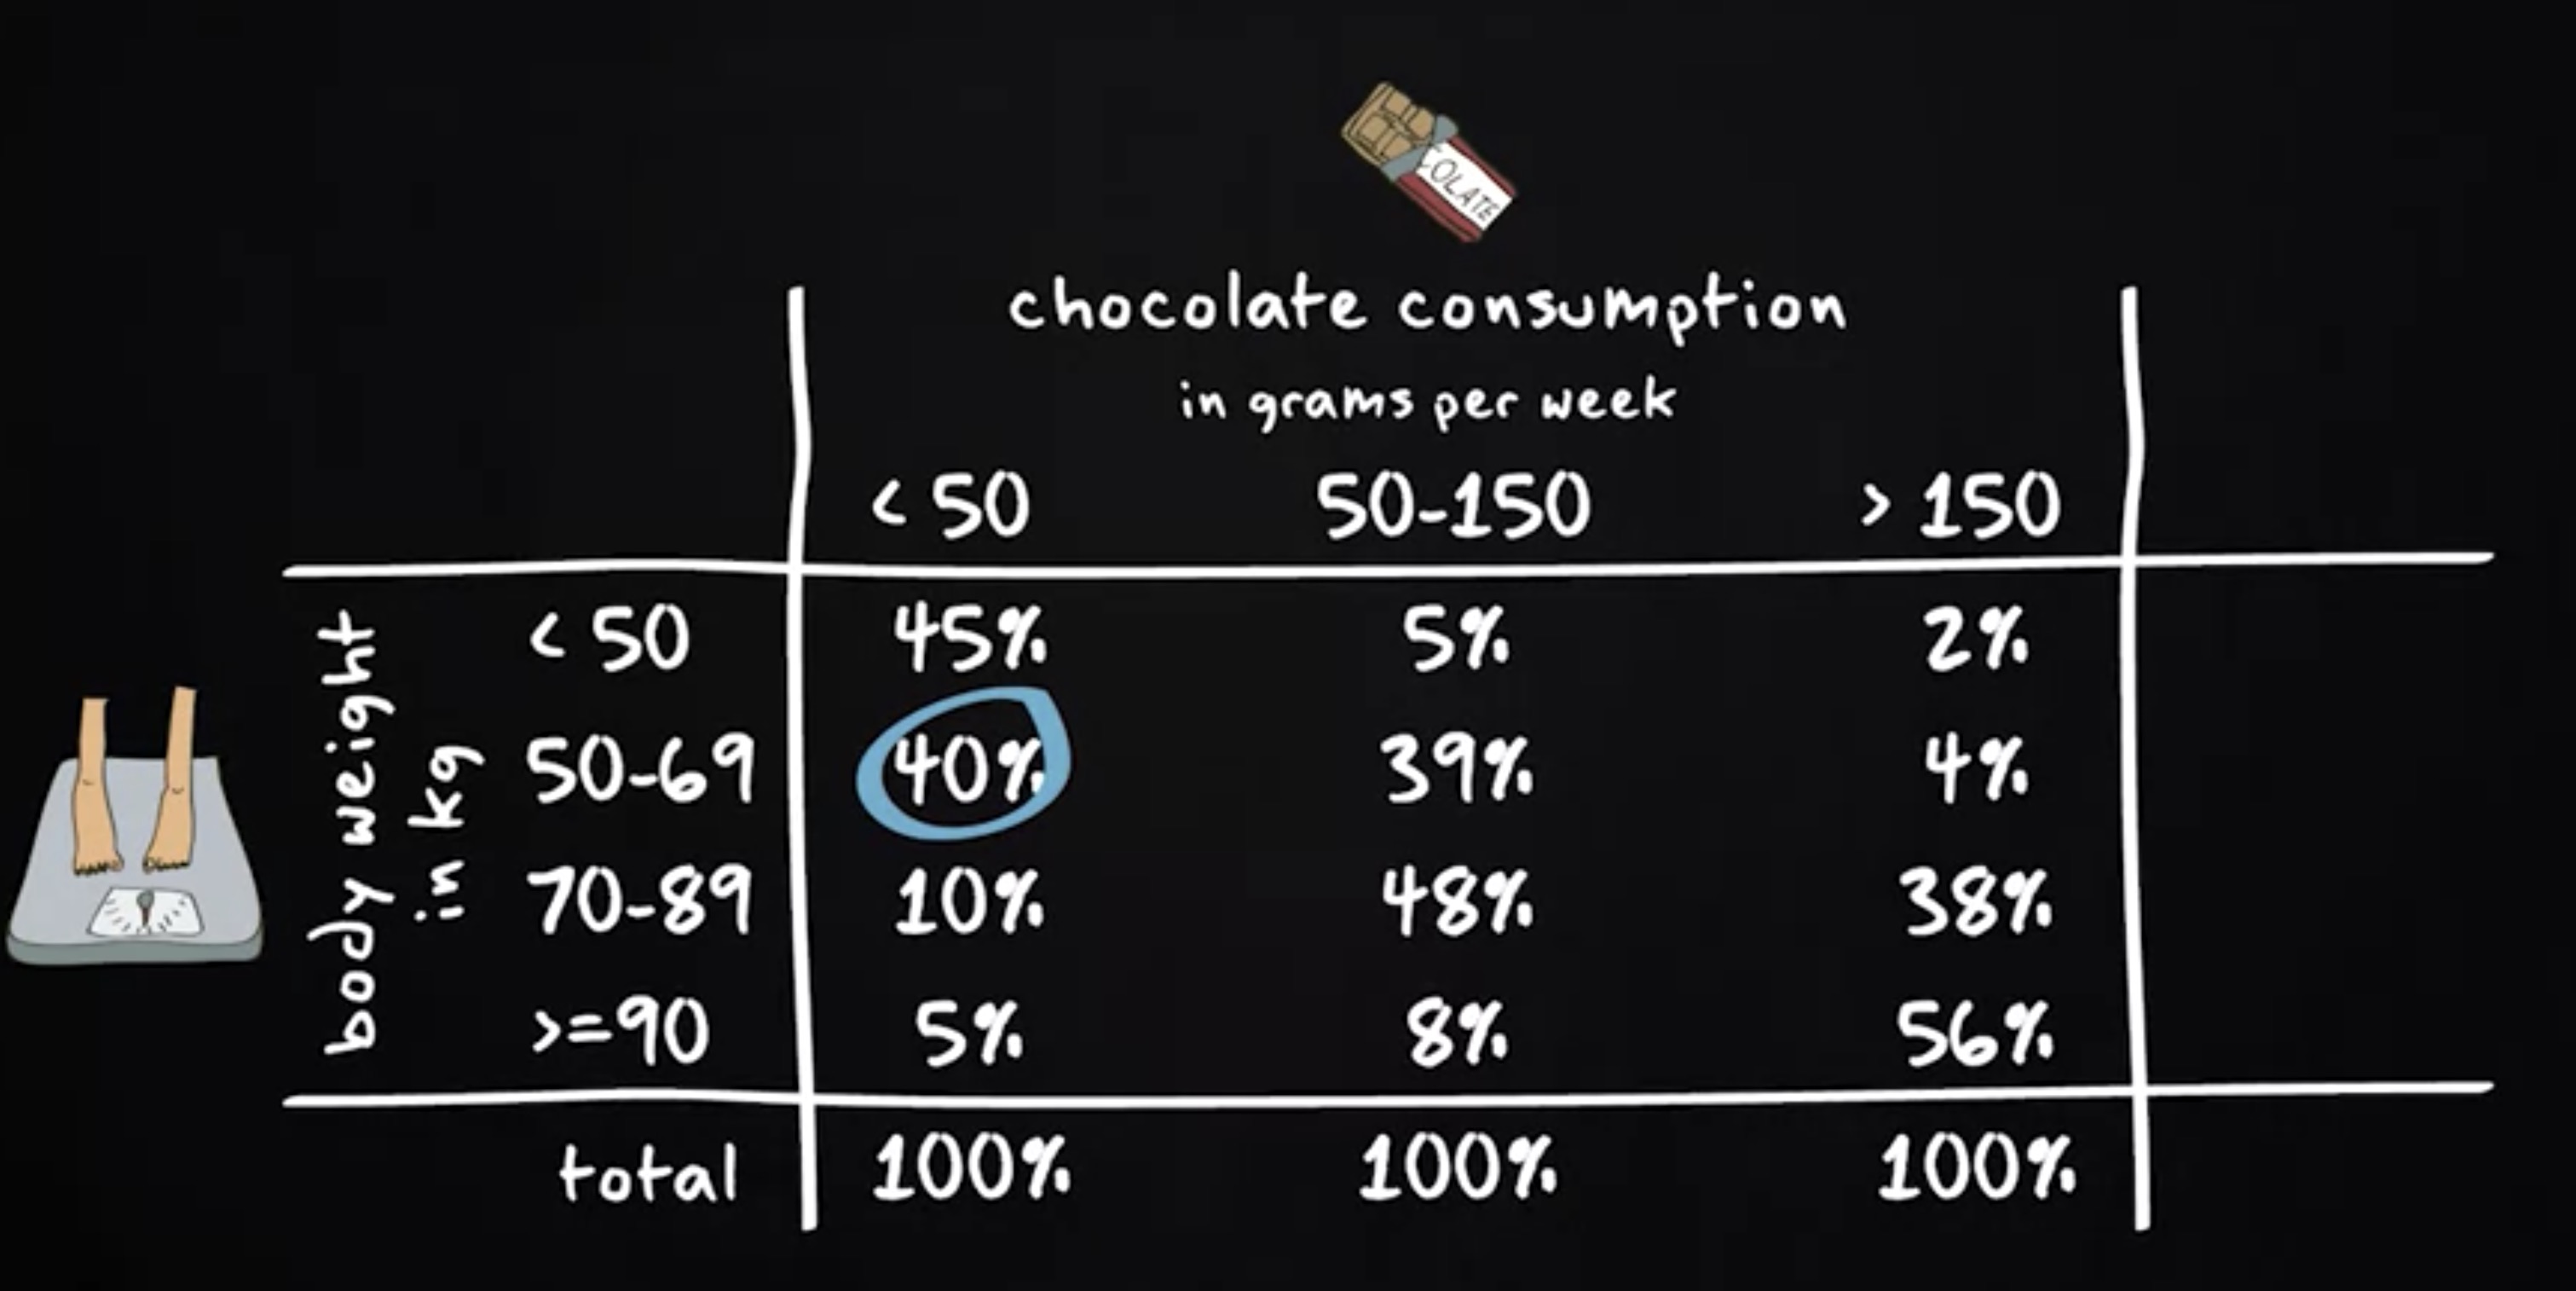 COLATE
chocolate consumption
in grams per week
< 50 50-150 > 150
body weight
in kg
< 50 45% 5% 2%
50-69 40% 39% 4%
70-89 10% 48% 38%
>=90 5% 8% 56%
total 100% 100% 100%